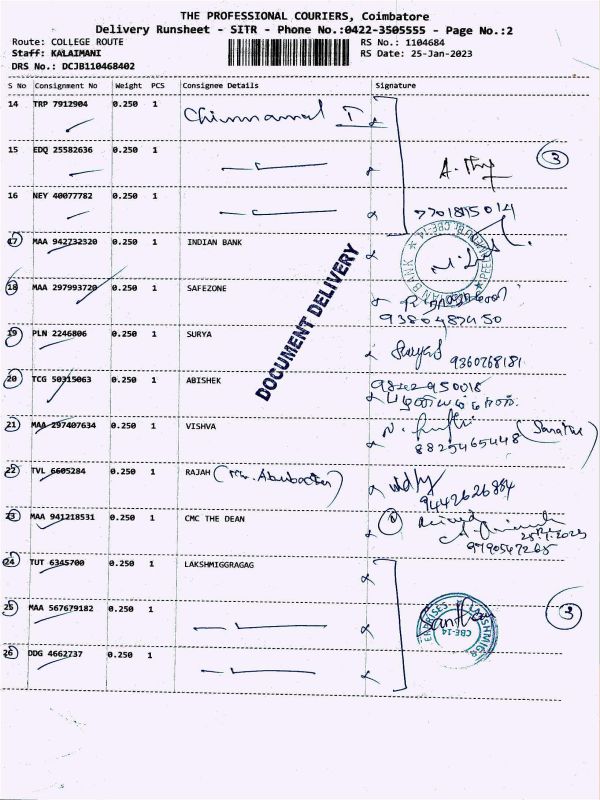 THE PROFESSIONAL COURIERS, Coimbatore
Delivery Runsheet - SITR - Phone No.:0422-3505555 - Page No.:2
Route: COLLEGE ROUTE RS No.: 1104684
Staff: KALAIMANI RS Date: 25-Jan-2023
DRS No.: DCJB110468402
S No Consignment No Weight PCS Consignee Details Signature
14 TRP 7912904 0.250 1 Chinnamal
15 EDQ 25582636 0.250 1 3
16 NEY 40077782 0.250 1
17 MAA 942732320 0.250 1 INDIAN BANK
18 MAA 297993720 0.250 1 SAFEZONE
DOCUMENT DELIVERY
19 PLN 2246806 0.250 1 SURYA 9360768181
20 TCG 50315063 0.250 1 ABISHEK
21 MAA 297407634 0.250 1 VISHVA 8825465448
22 TVL 6605284 0.250 1 RAJAH 9442626884
23 MAA 941218531 0.250 1 CMC THE DEAN
24 TUT 6345700 0.250 1 LAKSHMIGGRAGAG
25 MAA 567679182 0.250 1 3
CBE-14
26 DDG 4662737 0.250 1